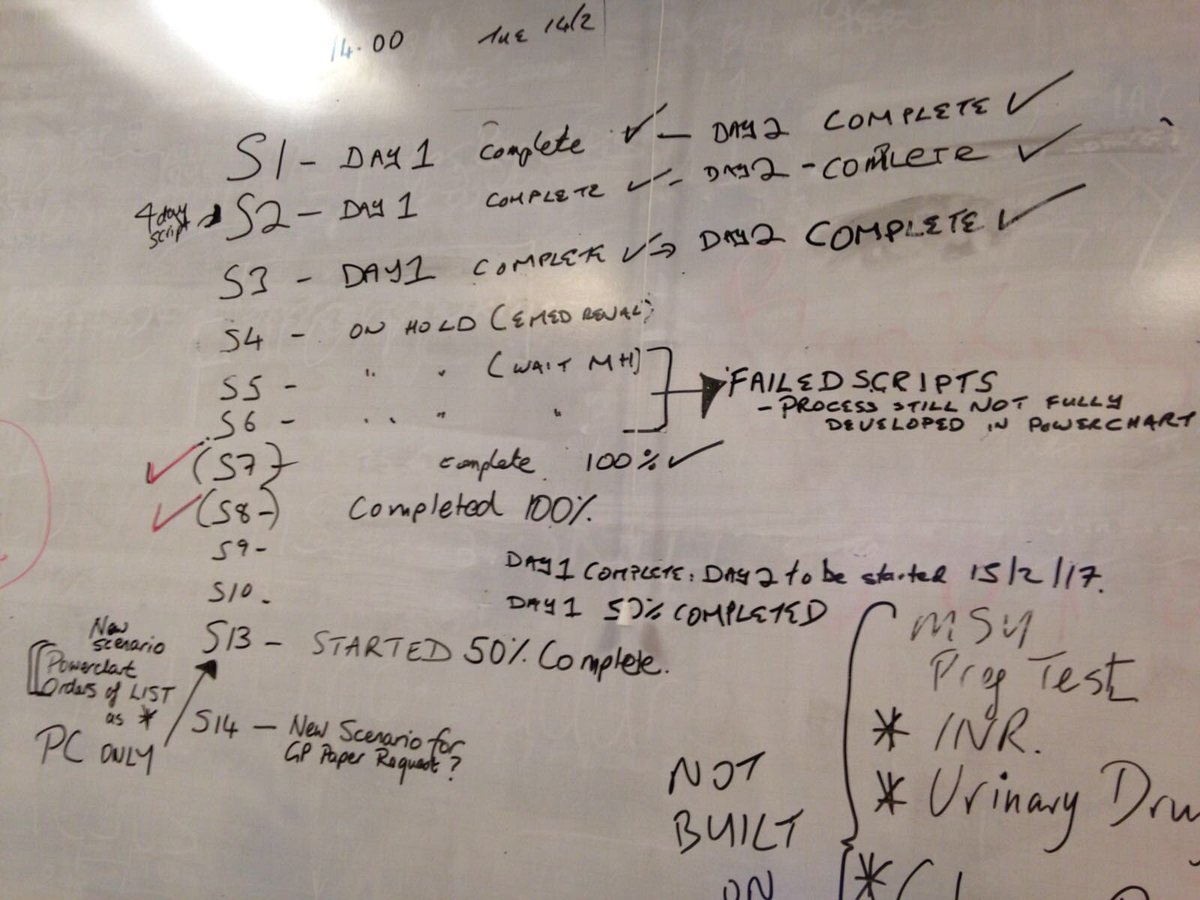 14.00 TUE 14/2
S1 - DAY 1 complete ✓ - DAY 2 COMPLETE ✓
4 day script → S2 - DAY 1 COMPLETE ✓ - DAY 2 - COMPLETE ✓
S3 - DAY 1 COMPLETE ✓ → DAY 2 COMPLETE ✓
S4 - ON HOLD (EMED RENAL)
S5 - " " (WAIT MH)
S6 - " " "
FAILED SCRIPTS
- PROCESS STILL NOT FULLY
DEVELOPED IN POWERCHART
✓ (S7) - complete 100% ✓
✓ (S8 -) Completed 100%.
S9 - DAY 1 COMPLETE. DAY 2 to be started 15/2/17.
S10. DAY 1 50% COMPLETED
S13 - STARTED 50% Complete.
New
scenario
Powerchart
Orders of LIST
as *
PC ONLY
S14 - New Scenario for
GP Paper Request?
NOT
BUILT
ON
MSU
Preg Test
* INR.
* Urinary Dru
*